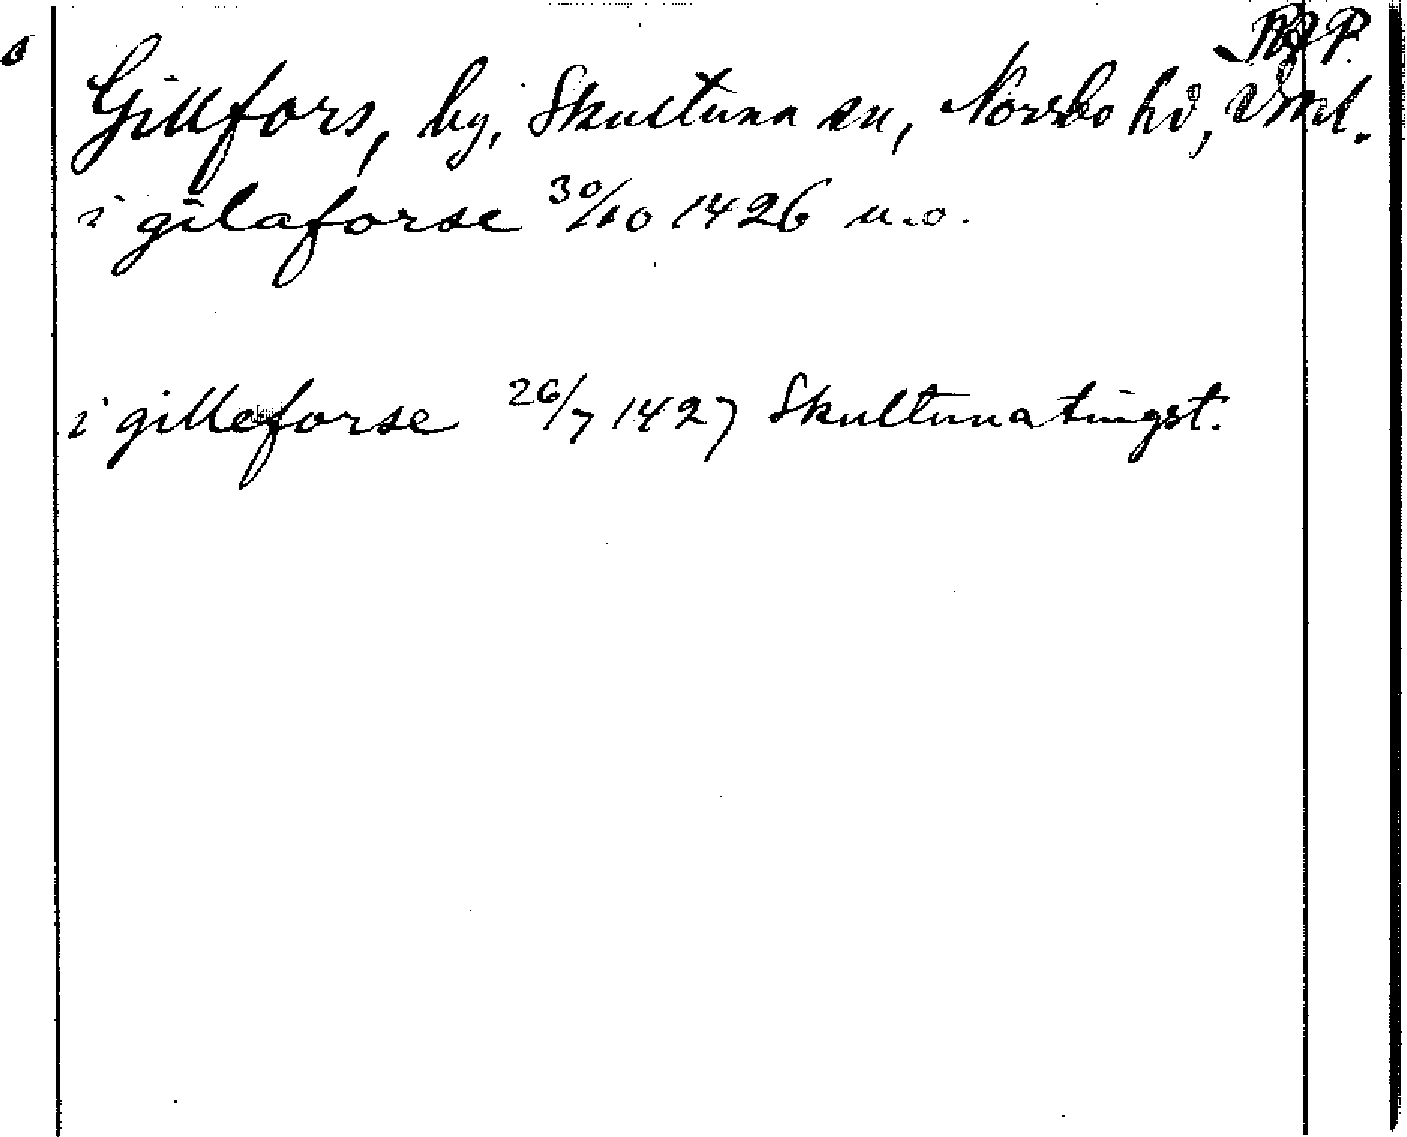 RAP.
Gillfors, by, Skultuna sn, Norrbo hd, Vml.
i gilaforse 30/10 1426 u.o.
i gilleforse 26/7 1427 Skultuna tingst.